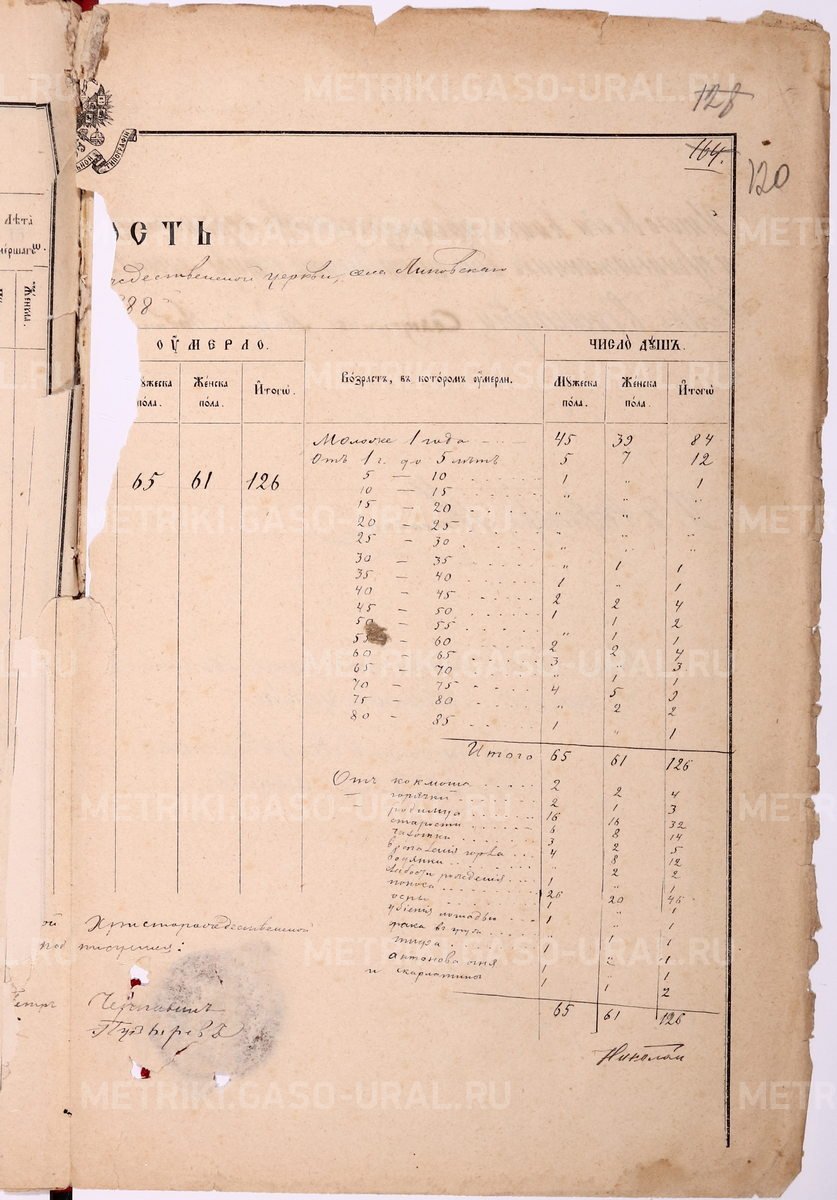 METRIKI.GASO-URAL.RU
128
164.
120
ТИПОГРАФІИ
ОСТЬ
Лѣта
Же́нска.
церкви, села Липовскаго
888
ОУМЕРЛО.
ЧИСЛО ДУШЪ.
Мꙋжеска пола.
Же́нска по́ла.
И҆тогѡ̀
Во́зрастъ, въ кото́ромъ оу҆мерли.
Мꙋжеска пола.
Же́нска пола.
И҆тогѡ̀
Моложе 1 года 45 39 84
Отъ 1 г. до 5 лѣтъ 5 7 12
65 61 126
5 — 10 1 " 1
10 — 15 " " "
15 — 20 " " "
20 — 25 " " "
25 — 30 " " "
30 — 35 " 1 1
35 — 40 1 " 1
40 — 45 2 2 4
45 — 50 1 1 2
50 — 55 " 1 1
55 — 60 2 2 4
60 — 65 3 " 3
65 — 70 " 1 1
70 — 75 4 5 9
75 — 80 " 2 2
80 — 85 1 " 1
Итого 65 61 126
Отъ коклюша 2 2 4
— горячки 2 1 3
родимца 16 16 32
старости 6 8 14
чахотки 3 2 5
4 8 12
водянки " 2 2
слабости рожденія 1 " 1
поноса 26 20 46
осны 1 " 1
убіенія лошадью 1 " 1
рака " 1 1
тифа " 1 1
антонова огня 1 " 1
и скарлатины 1 1 2
65 61 126
Христорождественской
Петръ
Пузыревъ
Николай